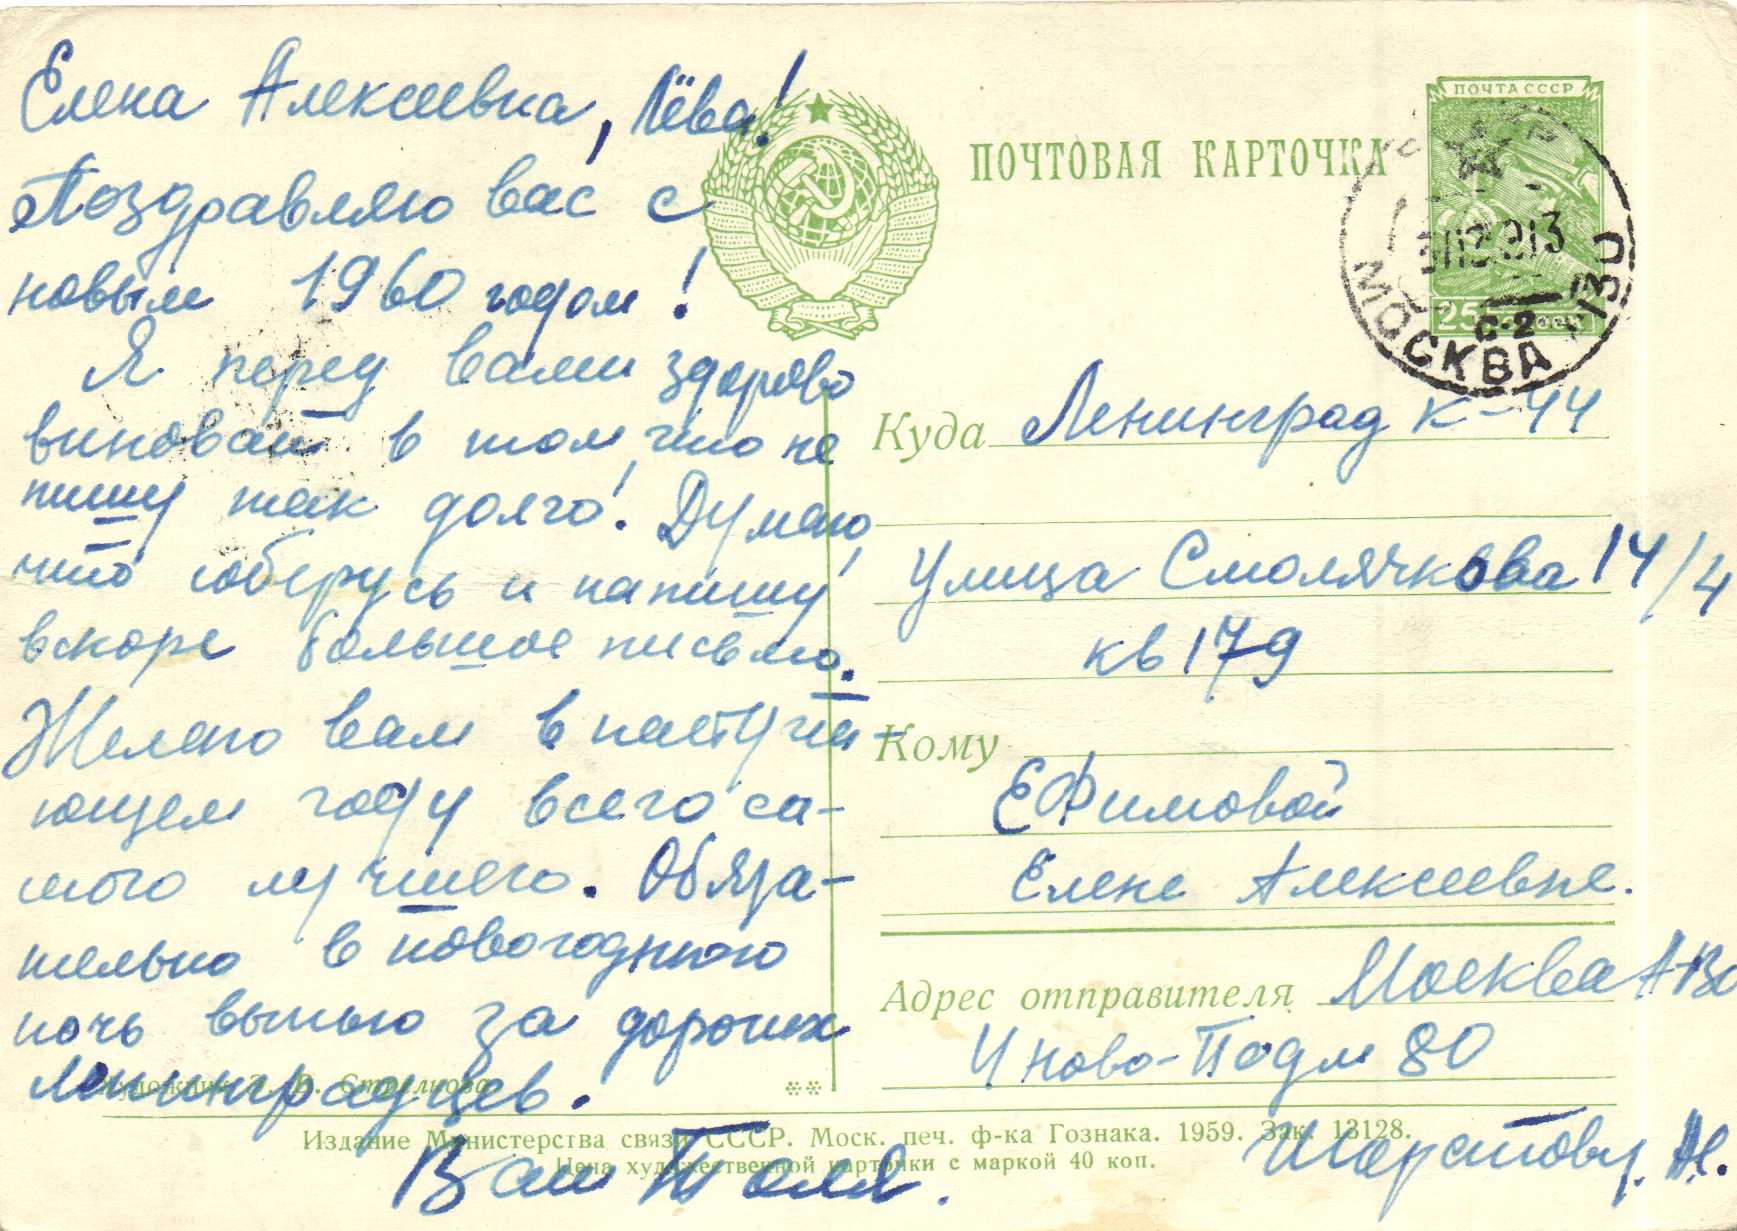 Елена Алексеевна, Лёва!
Поздравляю вас с
новым 1960 годом!
Я перед вами здорово
виноват в том, что не
пишу так долго! Думаю,
что соберусь и напишу
вскоре большое письмо.
Желаю вам в наступа-
ющем году всего са-
мого лучшего. Обяза-
тельно в новогоднюю
ночь выпью за дорогих
Ленинградцев.
Ваш Толя.
ПОЧТОВАЯ КАРТОЧКА
ПОЧТА СССР
25
МОСКВА
С-2
Куда Ленинград К-44
Улица Смолячкова 14/4
кв 179
Кому
Ефимовой
Елене Алексеевне.
Адрес отправителя Москва А-80
Ч Ново-Подм 80
Художник В. Стрелкова
Издание Министерства связи СССР. Моск. печ. ф-ка Гознака. 1959. Зак. 13128.
Цена художественной карточки с маркой 40 коп.